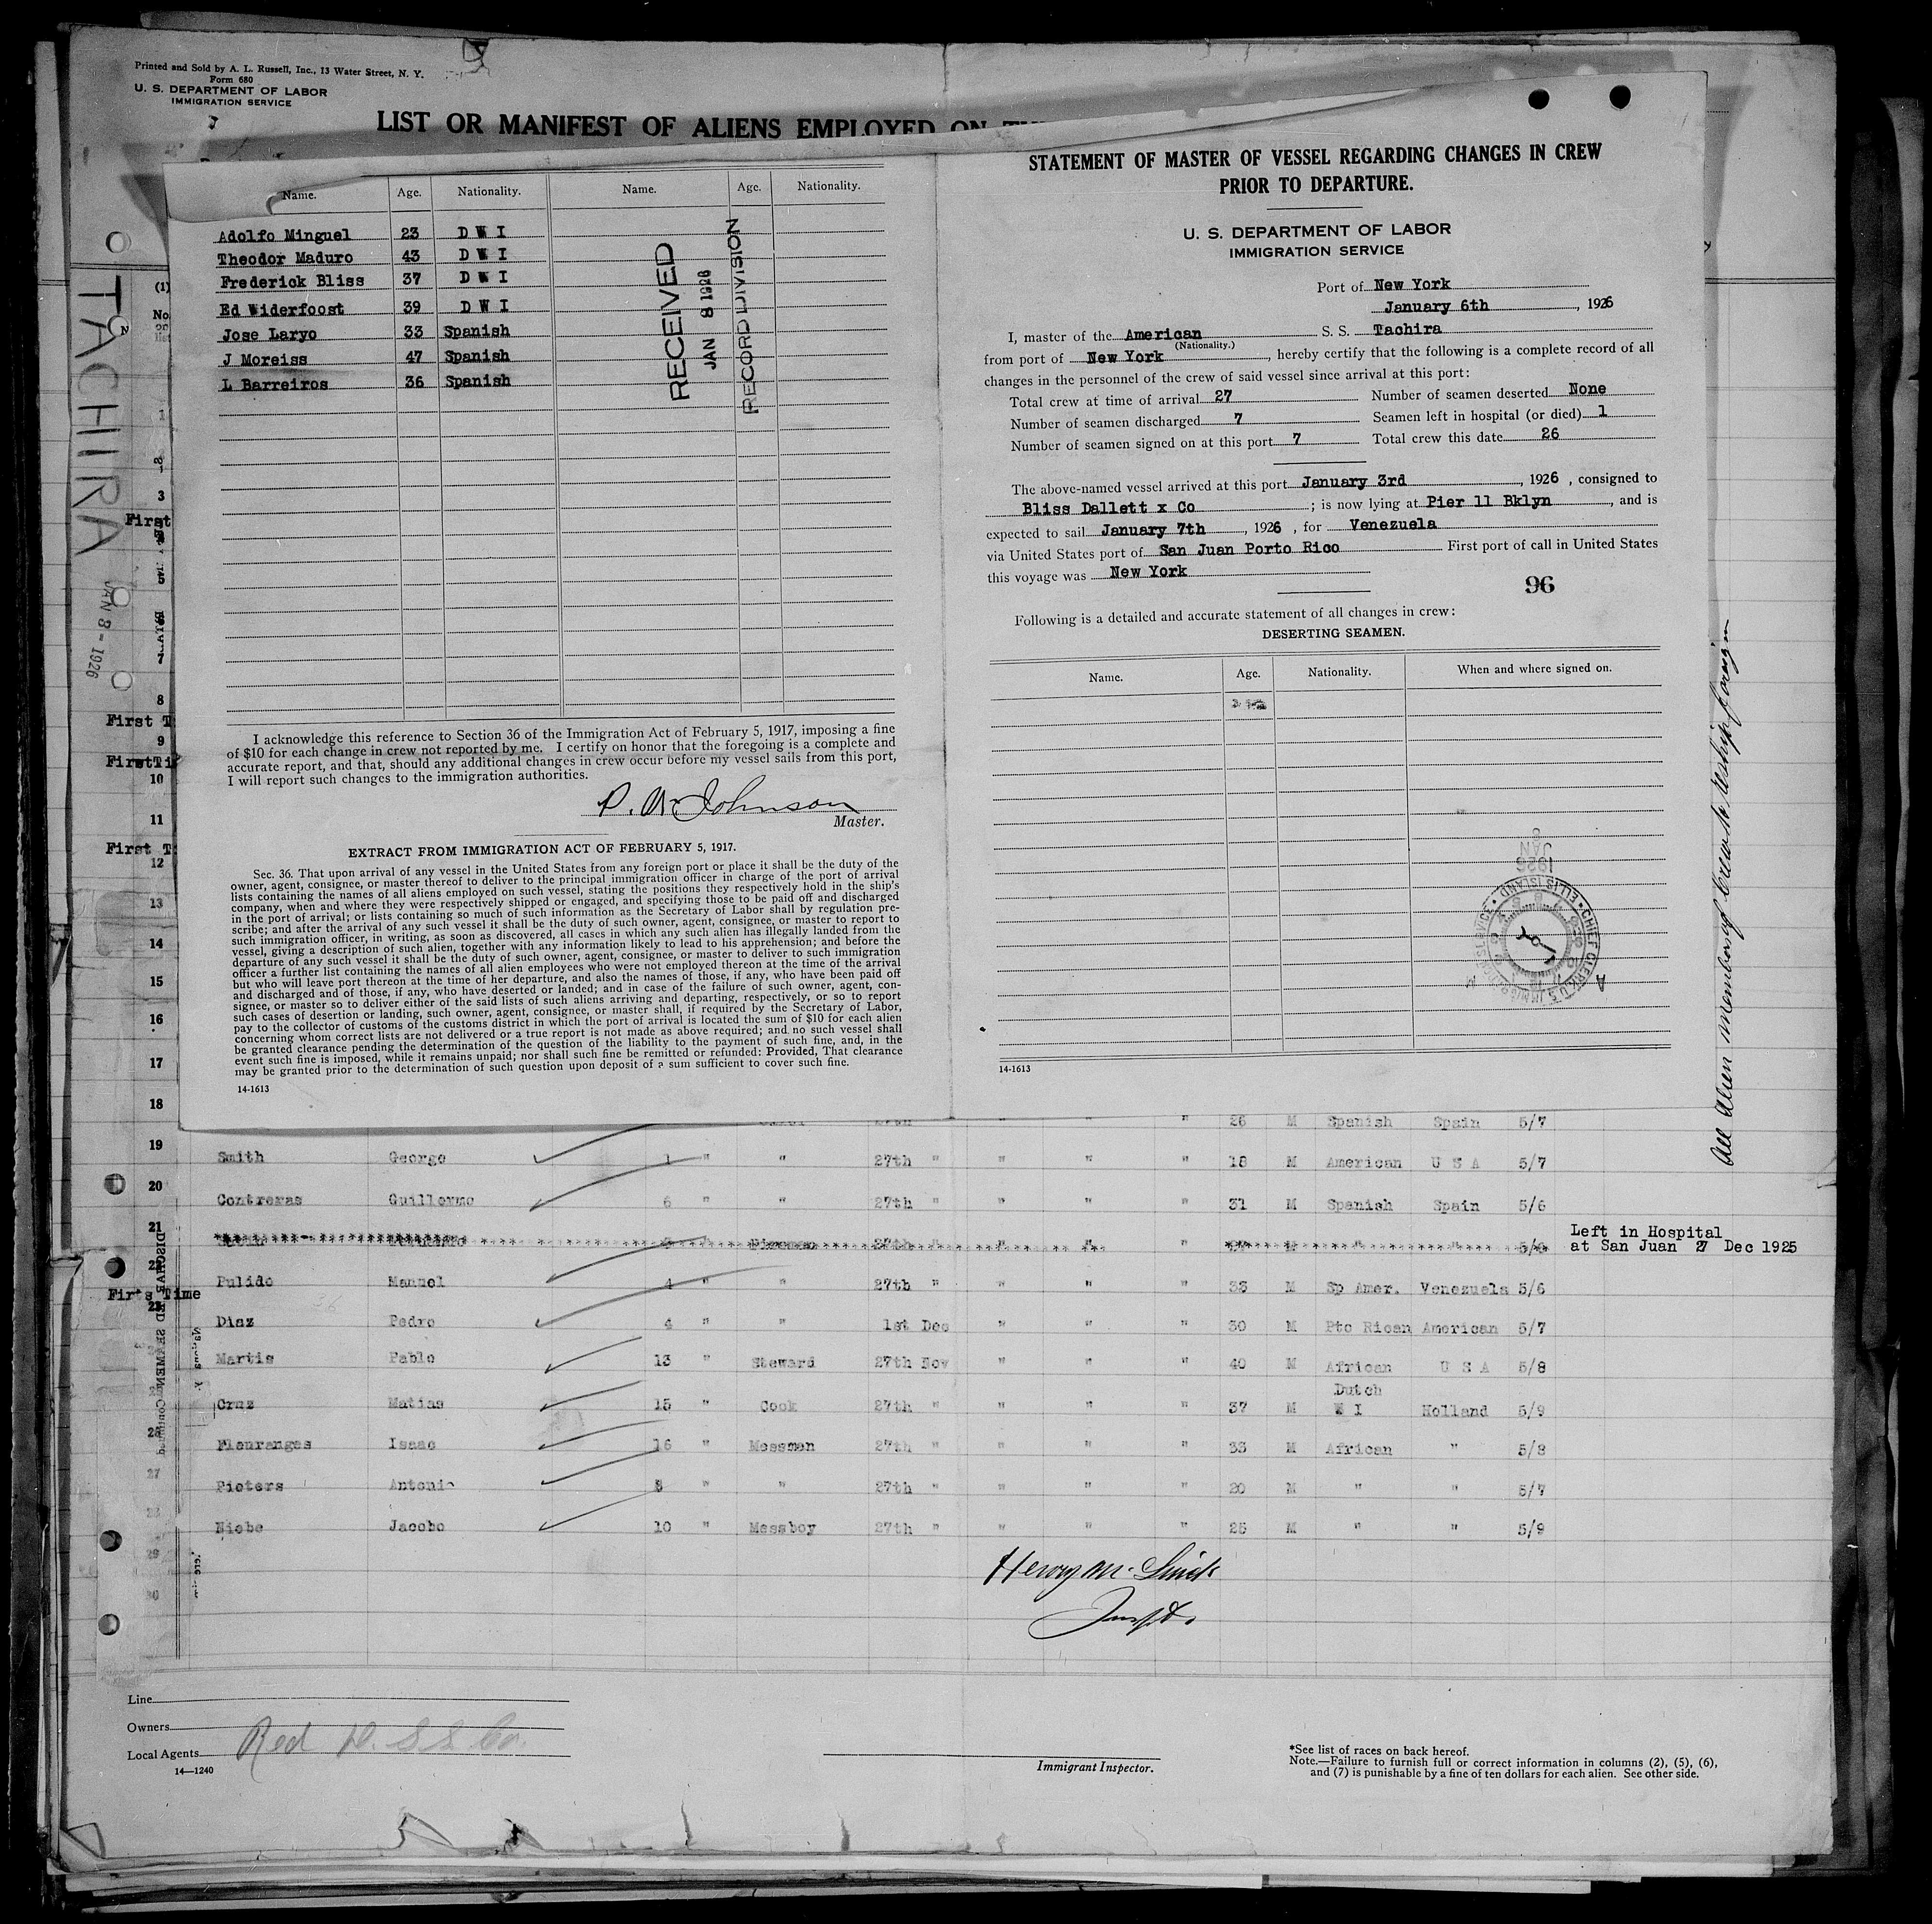 Printed and Sold by A. L. Russell, Inc., 13 Water Street, N. Y.
Form 680
U. S. DEPARTMENT OF LABOR
IMMIGRATION SERVICE
LIST OR MANIFEST OF ALIENS EMPLOYED ON
TACHIRA
JAN 8 - 1926
Name. Age. Nationality. Name. Age. Nationality.
Adolfo Minguel 23 D W I
Theodor Maduro 43 D W I
Frederick Bliss 37 D W I
Ed Widerfoost 39 D W I
Jose Laryo 33 Spanish
J Moreiss 47 Spanish
L Barreiros 36 Spanish
RECEIVED
JAN 8 1926
RECORD DIVISION
I acknowledge this reference to Section 36 of the Immigration Act of February 5, 1917, imposing a fine
of $10 for each change in crew not reported by me. I certify on honor that the foregoing is a complete and
accurate report, and that, should any additional changes in crew occur before my vessel sails from this port,
I will report such changes to the immigration authorities.
Johnson
Master.
EXTRACT FROM IMMIGRATION ACT OF FEBRUARY 5, 1917.
Sec. 36. That upon arrival of any vessel in the United States from any foreign port or place it shall be the duty of the
owner, agent, consignee, or master thereof to deliver to the principal immigration officer in charge of the port of arrival
lists containing the names of all aliens employed on such vessel, stating the positions they respectively hold in the ship's
company, when and where they were respectively shipped or engaged, and specifying those to be paid off and discharged
in the port of arrival; or lists containing so much of such information as the Secretary of Labor shall by regulation pre-
scribe; and after the arrival of any such vessel it shall be the duty of such owner, agent, consignee, or master to report to
such immigration officer, in writing, as soon as discovered, all cases in which any such alien has illegally landed from the
vessel, giving a description of such alien, together with any information likely to lead to his apprehension; and before the
departure of any such vessel it shall be the duty of such owner, agent, consignee, or master to deliver to such immigration
officer a further list containing the names of all alien employees who were not employed thereon at the time of the arrival
but who will leave port thereon at the time of her departure, and also the names of those, if any, who have been paid off
and discharged and of those, if any, who have deserted or landed; and in case of the failure of such owner, agent, con-
signee, or master so to deliver either of the said lists of such aliens arriving and departing, respectively, or so to report
such cases of desertion or landing, such owner, agent, consignee, or master shall, if required by the Secretary of Labor,
pay to the collector of customs of the customs district in which the port of arrival is located the sum of $10 for each alien
concerning whom correct lists are not delivered or a true report is not made as above required; and no such vessel shall
be granted clearance pending the determination of the question of the liability to the payment of such fine, and, in the
event such fine is imposed, while it remains unpaid; nor shall such fine be remitted or refunded: Provided, That clearance
may be granted prior to the determination of such question upon deposit of a sum sufficient to cover such fine.
14-1613
STATEMENT OF MASTER OF VESSEL REGARDING CHANGES IN CREW
PRIOR TO DEPARTURE.
U. S. DEPARTMENT OF LABOR
IMMIGRATION SERVICE
Port of New York
January 6th, 1926
I, master of the American S. S. Tachira
(Nationality.)
from port of New York, hereby certify that the following is a complete record of all
changes in the personnel of the crew of said vessel since arrival at this port:
Total crew at time of arrival 27 Number of seamen deserted None
Number of seamen discharged 7 Seamen left in hospital (or died) 1
Number of seamen signed on at this port 7 Total crew this date 26
The above-named vessel arrived at this port January 3rd, 1926, consigned to
Bliss Dallett x Co; is now lying at Pier 11 Bklyn, and is
expected to sail January 7th, 1926, for Venezuela
via United States port of San Juan Porto Rico First port of call in United States
this voyage was New York
96
Following is a detailed and accurate statement of all changes in crew:
DESERTING SEAMEN.
Name. Age. Nationality. When and where signed on.
JAN 1926
CHIEF CLERK, U.S. IMMIGRATION SERVICE ELLIS ISLAND
14-1613
All Alien members of crew to reship foreign
(1)
No
1
3
First
5
8
First T
9
First Ti
10
11
First T
12
13
14
15
16
17
18
26 M Spanish Spain 5/7
19 Smith George 1 " " 27th " " " " 18 M American U S A 5/7
20 Contreras Guillermo 6 " " 27th " " " " 31 M Spanish Spain 5/6
21 Fireman 27th " " " " M " " Left in Hospital
at San Juan 27 Dec 1925
22 Pulido Manuel 4 " " 27th " " " " 33 M Sp Amer. Venezuela 5/6
Firts Time
23 Diaz Pedro 4 " " 1st Dec " " " 30 M Pto Rican American 5/7
Martis Pablo 13 " Steward 27th Nov " " " 40 M African U S A 5/8
Cruz Matias 15 " Cook 27th " " " " 37 M Dutch W I Holland 5/9
Fleurangas Isaac 16 " Messman 27th " " " " 33 M African " 5/8
27 Pieters Antonio 8 " " 27th " " " " 20 M " " 5/7
Niebe Jacobo 10 " Messboy 27th " " " " 25 M " " 5/9
29
30
DISCHARGED SEAMEN
Henry M.
Line
Owners
Local Agents Red D. S S Co.
14—1240
Immigrant Inspector.
*See list of races on back hereof.
Note.—Failure to furnish full or correct information in columns (2), (5), (6),
and (7) is punishable by a fine of ten dollars for each alien. See other side.